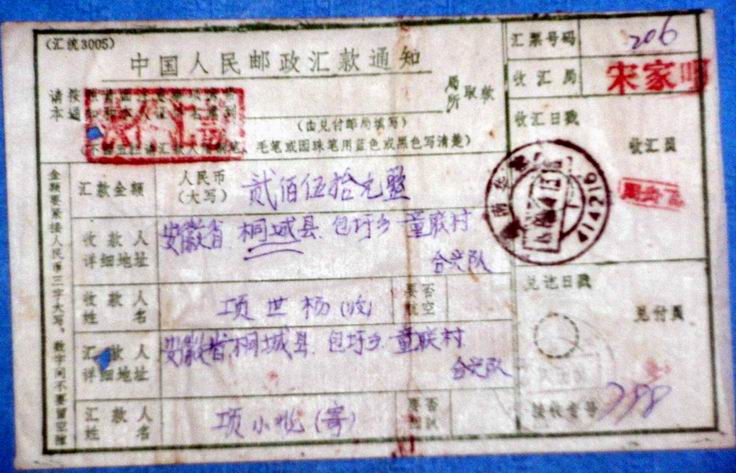 (汇统3005)
中国人民邮政汇款通知
汇票号码 206
收汇局 宋家
局所取款
(由兑付邮局填写)
毛笔或圆珠笔用蓝色或黑色写清楚)
收汇日戳
收汇员
414216
金额要紧接人民币三字大写。数字间不要留空隙
汇款金额 人民币(大写) 贰佰伍拾元整
收款人详细地址 安徽省桐城县包圩乡童联村
合兴队
收款人姓名 项世杨(收)
要否航空
汇款人详细地址 安徽省桐城县包圩乡童联村
合兴队
汇款人姓名 项小兆(寄)
要否
兑讫日戳
兑付员
接收音号 798